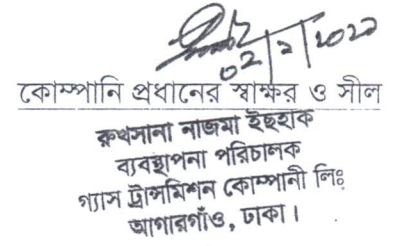 02/2/2022
কোম্পানি প্রধানের স্বাক্ষর ও সীল
রুখসানা নাজমা ইছহাক
ব্যবস্থাপনা পরিচালক
গ্যাস ট্রান্সমিশন কোম্পানী লিঃ
আগারগাঁও, ঢাকা।